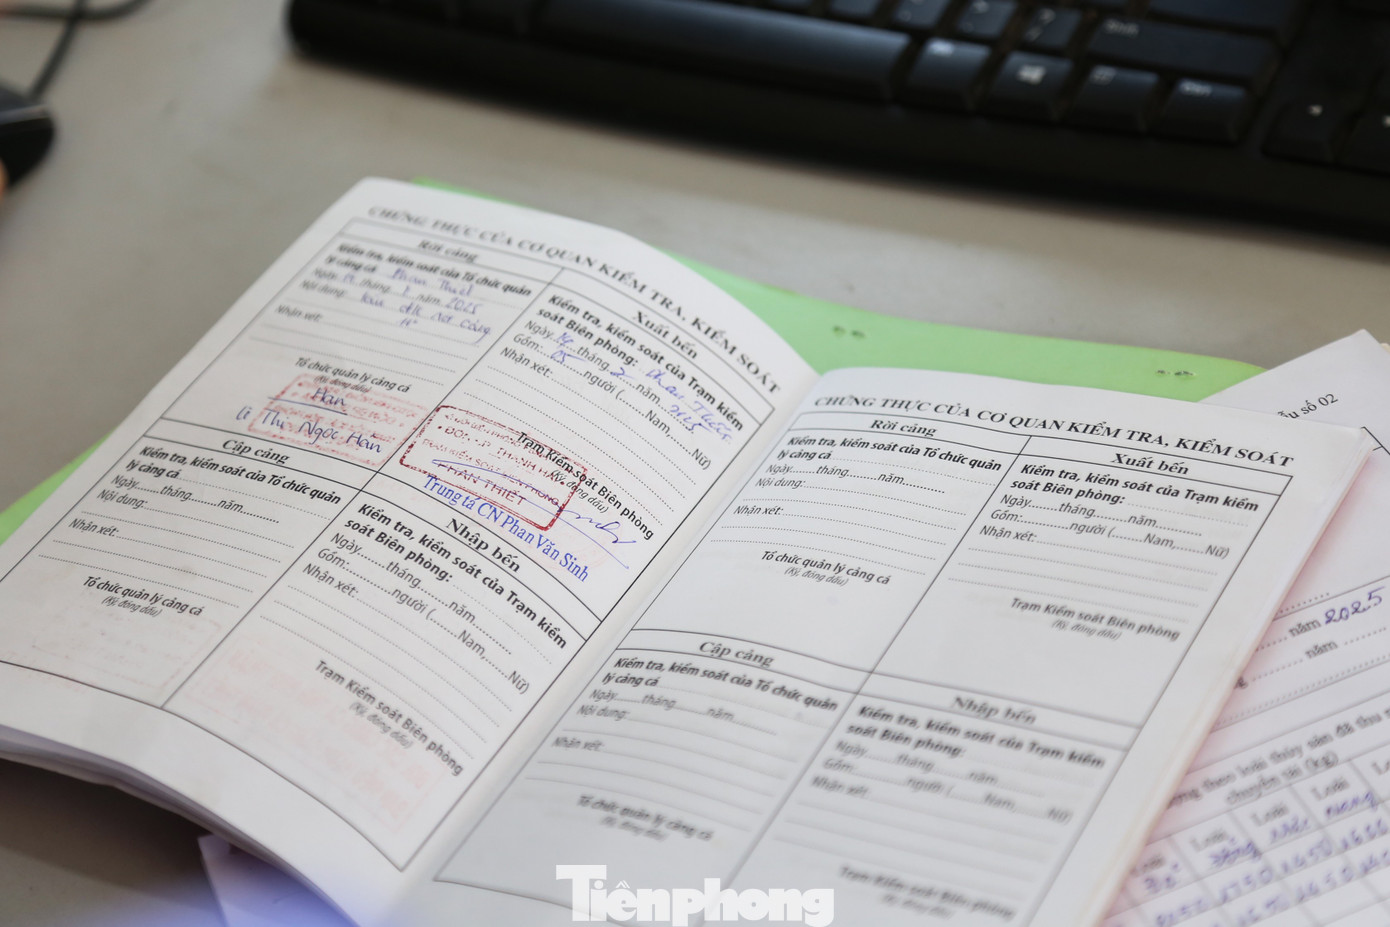 CHỨNG THỰC CỦA CƠ QUAN KIỂM TRA, KIỂM SOÁT
Rời cảng
Kiểm tra, kiểm soát của Tổ chức quản
lý cảng cá Phan Thiết
Ngày tháng năm 2025
Nội dung:
Nhận xét:
Tổ chức quản lý cảng cá
(Ký, đóng dấu)
Hân
Thị Ngọc Hân
Xuất bến
Kiểm tra, kiểm soát của Trạm kiểm
soát Biên phòng: Phan Thiết
Ngày tháng 2 năm 2025
Gồm: 05 người (.......Nam,.......Nữ)
Nhận xét:
Trạm Kiểm soát Biên phòng
(Ký, đóng dấu)
THANH HẢI
PHAN THIẾT
Trung tá CN Phan Văn Sinh
Cập cảng
Kiểm tra, kiểm soát của Tổ chức quản
lý cảng cá
Ngày.......tháng.......năm..........
Nội dung:
Nhận xét:
Tổ chức quản lý cảng cá
(Ký, đóng dấu)
Nhập bến
Kiểm tra, kiểm soát của Trạm kiểm
soát Biên phòng:
Ngày.......tháng.......năm..........
Gồm:..........người (.......Nam,.......Nữ)
Nhận xét:
Trạm Kiểm soát Biên phòng
(Ký, đóng dấu)
CHỨNG THỰC CỦA CƠ QUAN KIỂM TRA, KIỂM SOÁT
Rời cảng
Kiểm tra, kiểm soát của Tổ chức quản
lý cảng cá
Ngày.......tháng.......năm..........
Nội dung:
Nhận xét:
Tổ chức quản lý cảng cá
(Ký, đóng dấu)
Xuất bến
Kiểm tra, kiểm soát của Trạm kiểm
soát Biên phòng:
Ngày.......tháng.......năm..........
Gồm:..........người (.......Nam,.......Nữ)
Nhận xét:
Trạm Kiểm soát Biên phòng
(Ký, đóng dấu)
Cập cảng
Kiểm tra, kiểm soát của Tổ chức quản
lý cảng cá
Ngày.......tháng.......năm..........
Nội dung:
Nhận xét:
Tổ chức quản lý cảng cá
(Ký, đóng dấu)
Nhập bến
Kiểm tra, kiểm soát của Trạm kiểm
soát Biên phòng:
Ngày.......tháng.......năm..........
Gồm:..........người (.......Nam,.......Nữ)
Nhận xét:
Trạm Kiểm soát Biên phòng
(Ký, đóng dấu)
số 02
năm 2025
năm
theo loài thủy sản đã thu
chuyển tải (kg)
Loài
Loài
Loài
Tiềnphong